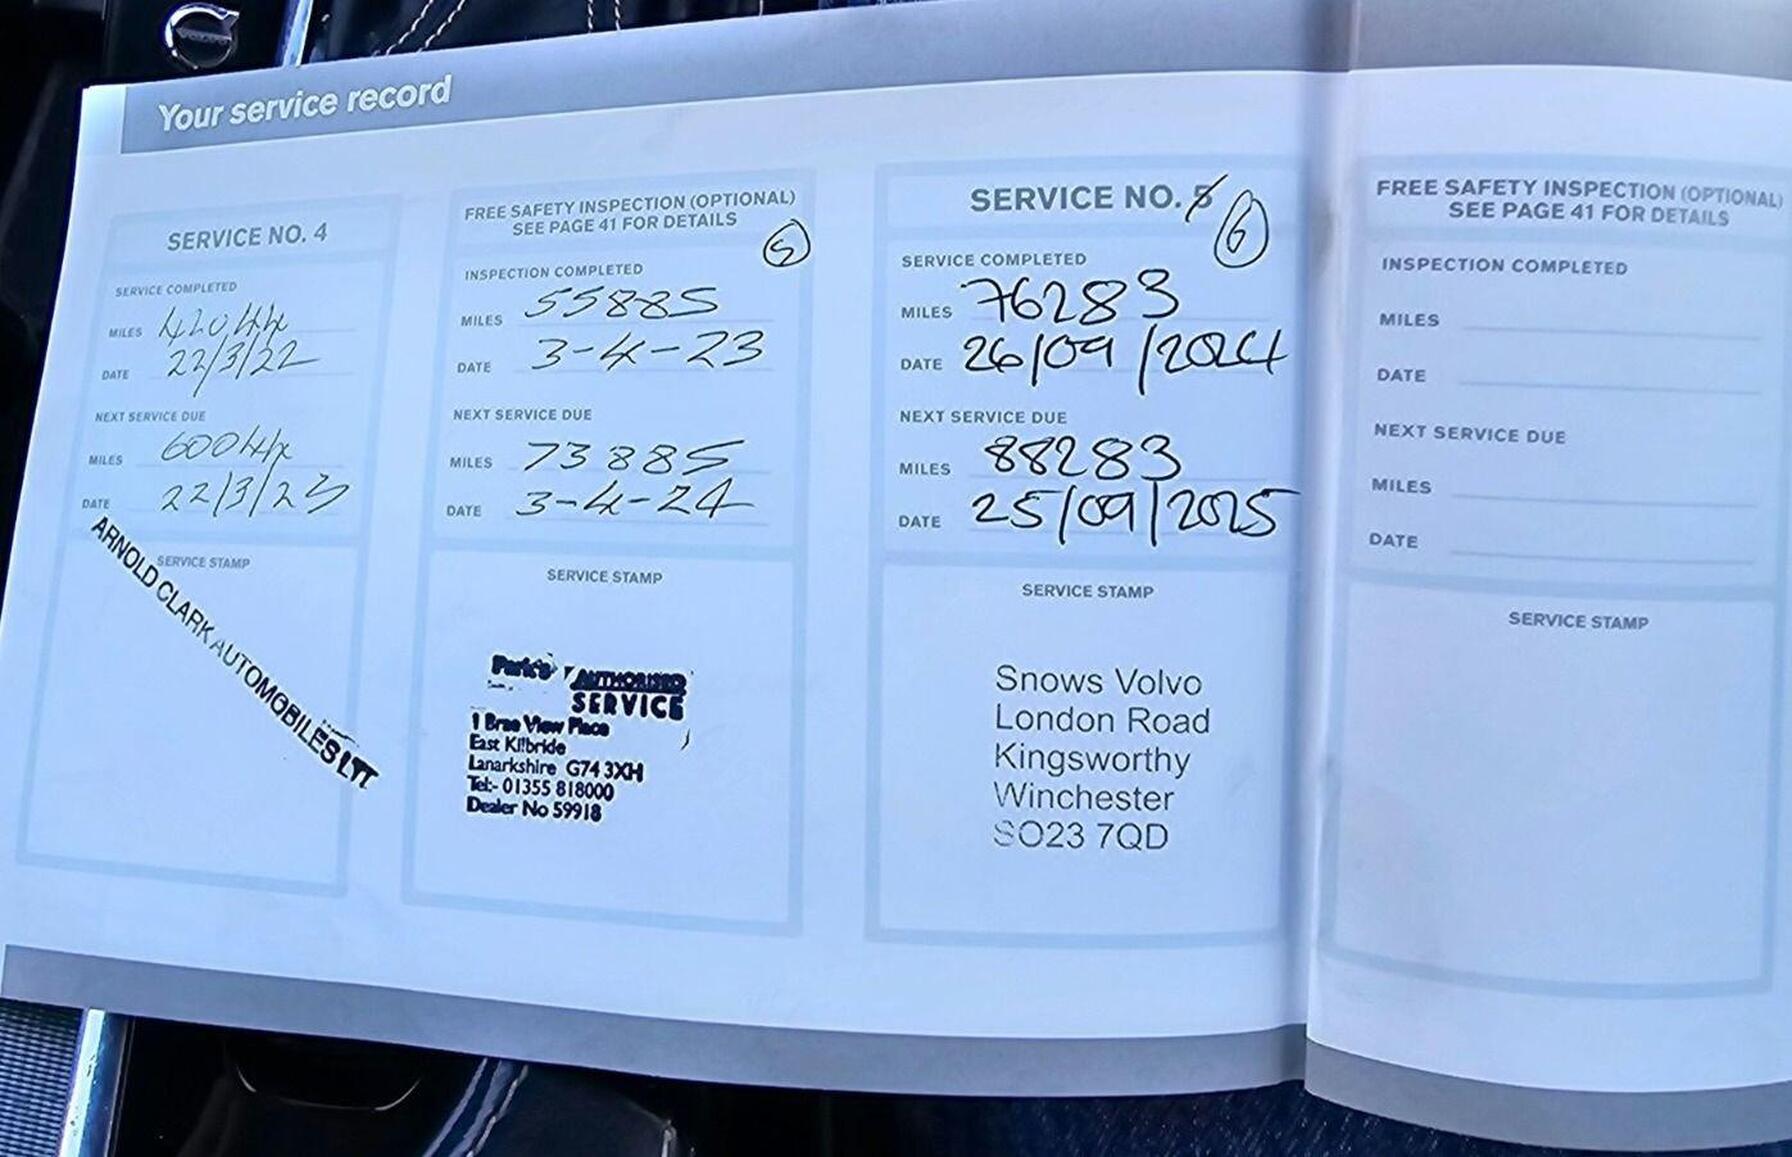 VOLVO
Your service record
SERVICE NO. 4
SERVICE COMPLETED
MILES 42044
DATE 22/3/22
NEXT SERVICE DUE
MILES 60044
DATE 22/3/23
SERVICE STAMP
ARNOLD CLARK AUTOMOBILES LTD
FREE SAFETY INSPECTION (OPTIONAL)
SEE PAGE 41 FOR DETAILS
5
INSPECTION COMPLETED
MILES 55885
DATE 3-4-23
NEXT SERVICE DUE
MILES 73885
DATE 3-4-24
SERVICE STAMP
Park's AUTHORISED
SERVICE
1 Brae View Place
East Kilbride
Lanarkshire G74 3XH
Tel:- 01355 818000
Dealer No 59918
SERVICE NO. 5 6
SERVICE COMPLETED
MILES 76283
DATE 26/09/2024
NEXT SERVICE DUE
MILES 88283
DATE 25/09/2025
SERVICE STAMP
Snows Volvo
London Road
Kingsworthy
Winchester
SO23 7QD
FREE SAFETY INSPECTION (OPTIONAL)
SEE PAGE 41 FOR DETAILS
INSPECTION COMPLETED
MILES
DATE
NEXT SERVICE DUE
MILES
DATE
SERVICE STAMP